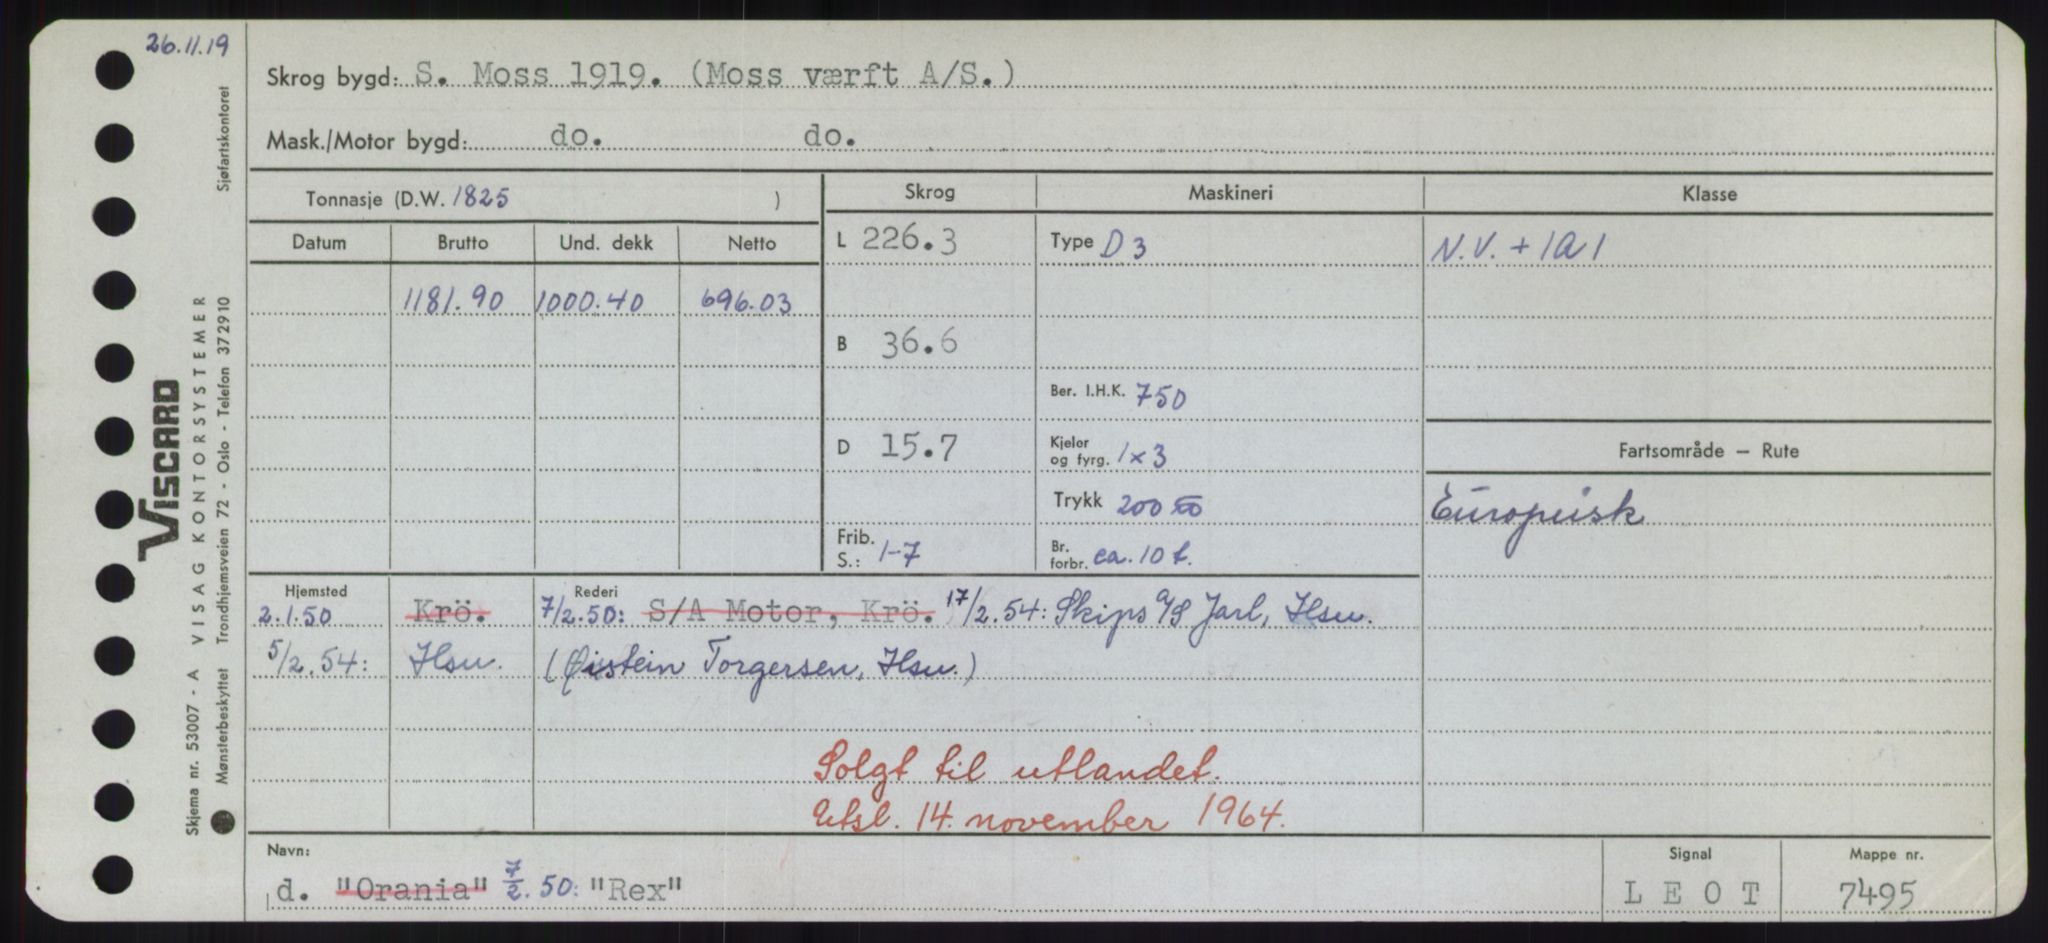 26.11.19
Skrog bygd: S. Moss 1919. (Moss værft A/S.)
Mask./Motor bygd: do. do.
Tonnasje (D.W. 1825 )
Datum Brutto Und. dekk Netto
1181.90 1000.40 696.03
Skrog Maskineri Klasse
L 226.3 Type D 3 N.V. + 1A1
B 36.6
Ber. I.H.K. 750
D 15.7 Kjeler og fyrg. 1x3 Fartsområde – Rute
Trykk 200 Europeisk
Frib. S.: 1-7 Br. forbr. ca. 10 t.
Hjemsted Rederi
2.1.50 Krö. 7/2.50: S/A Motor, Krö. 17/2.54: Skips A/S Jarl, Hsu.
5/2.54: Hsu. (Øistein Torgersen, Hsu.)
Solgt til utlandet.
Utsl. 14. november 1964.
Navn: Signal Mappe nr.
d. "Orania" 7/2.50: "Rex" L E O T 7495
VISCARD
Skjema nr. 53007 - A VISAG KONTORSYSTEMER
Mønsterbeskyttet Trondhjemsveien 72 - Oslo - Telefon 372910 Sjøfartskontoret